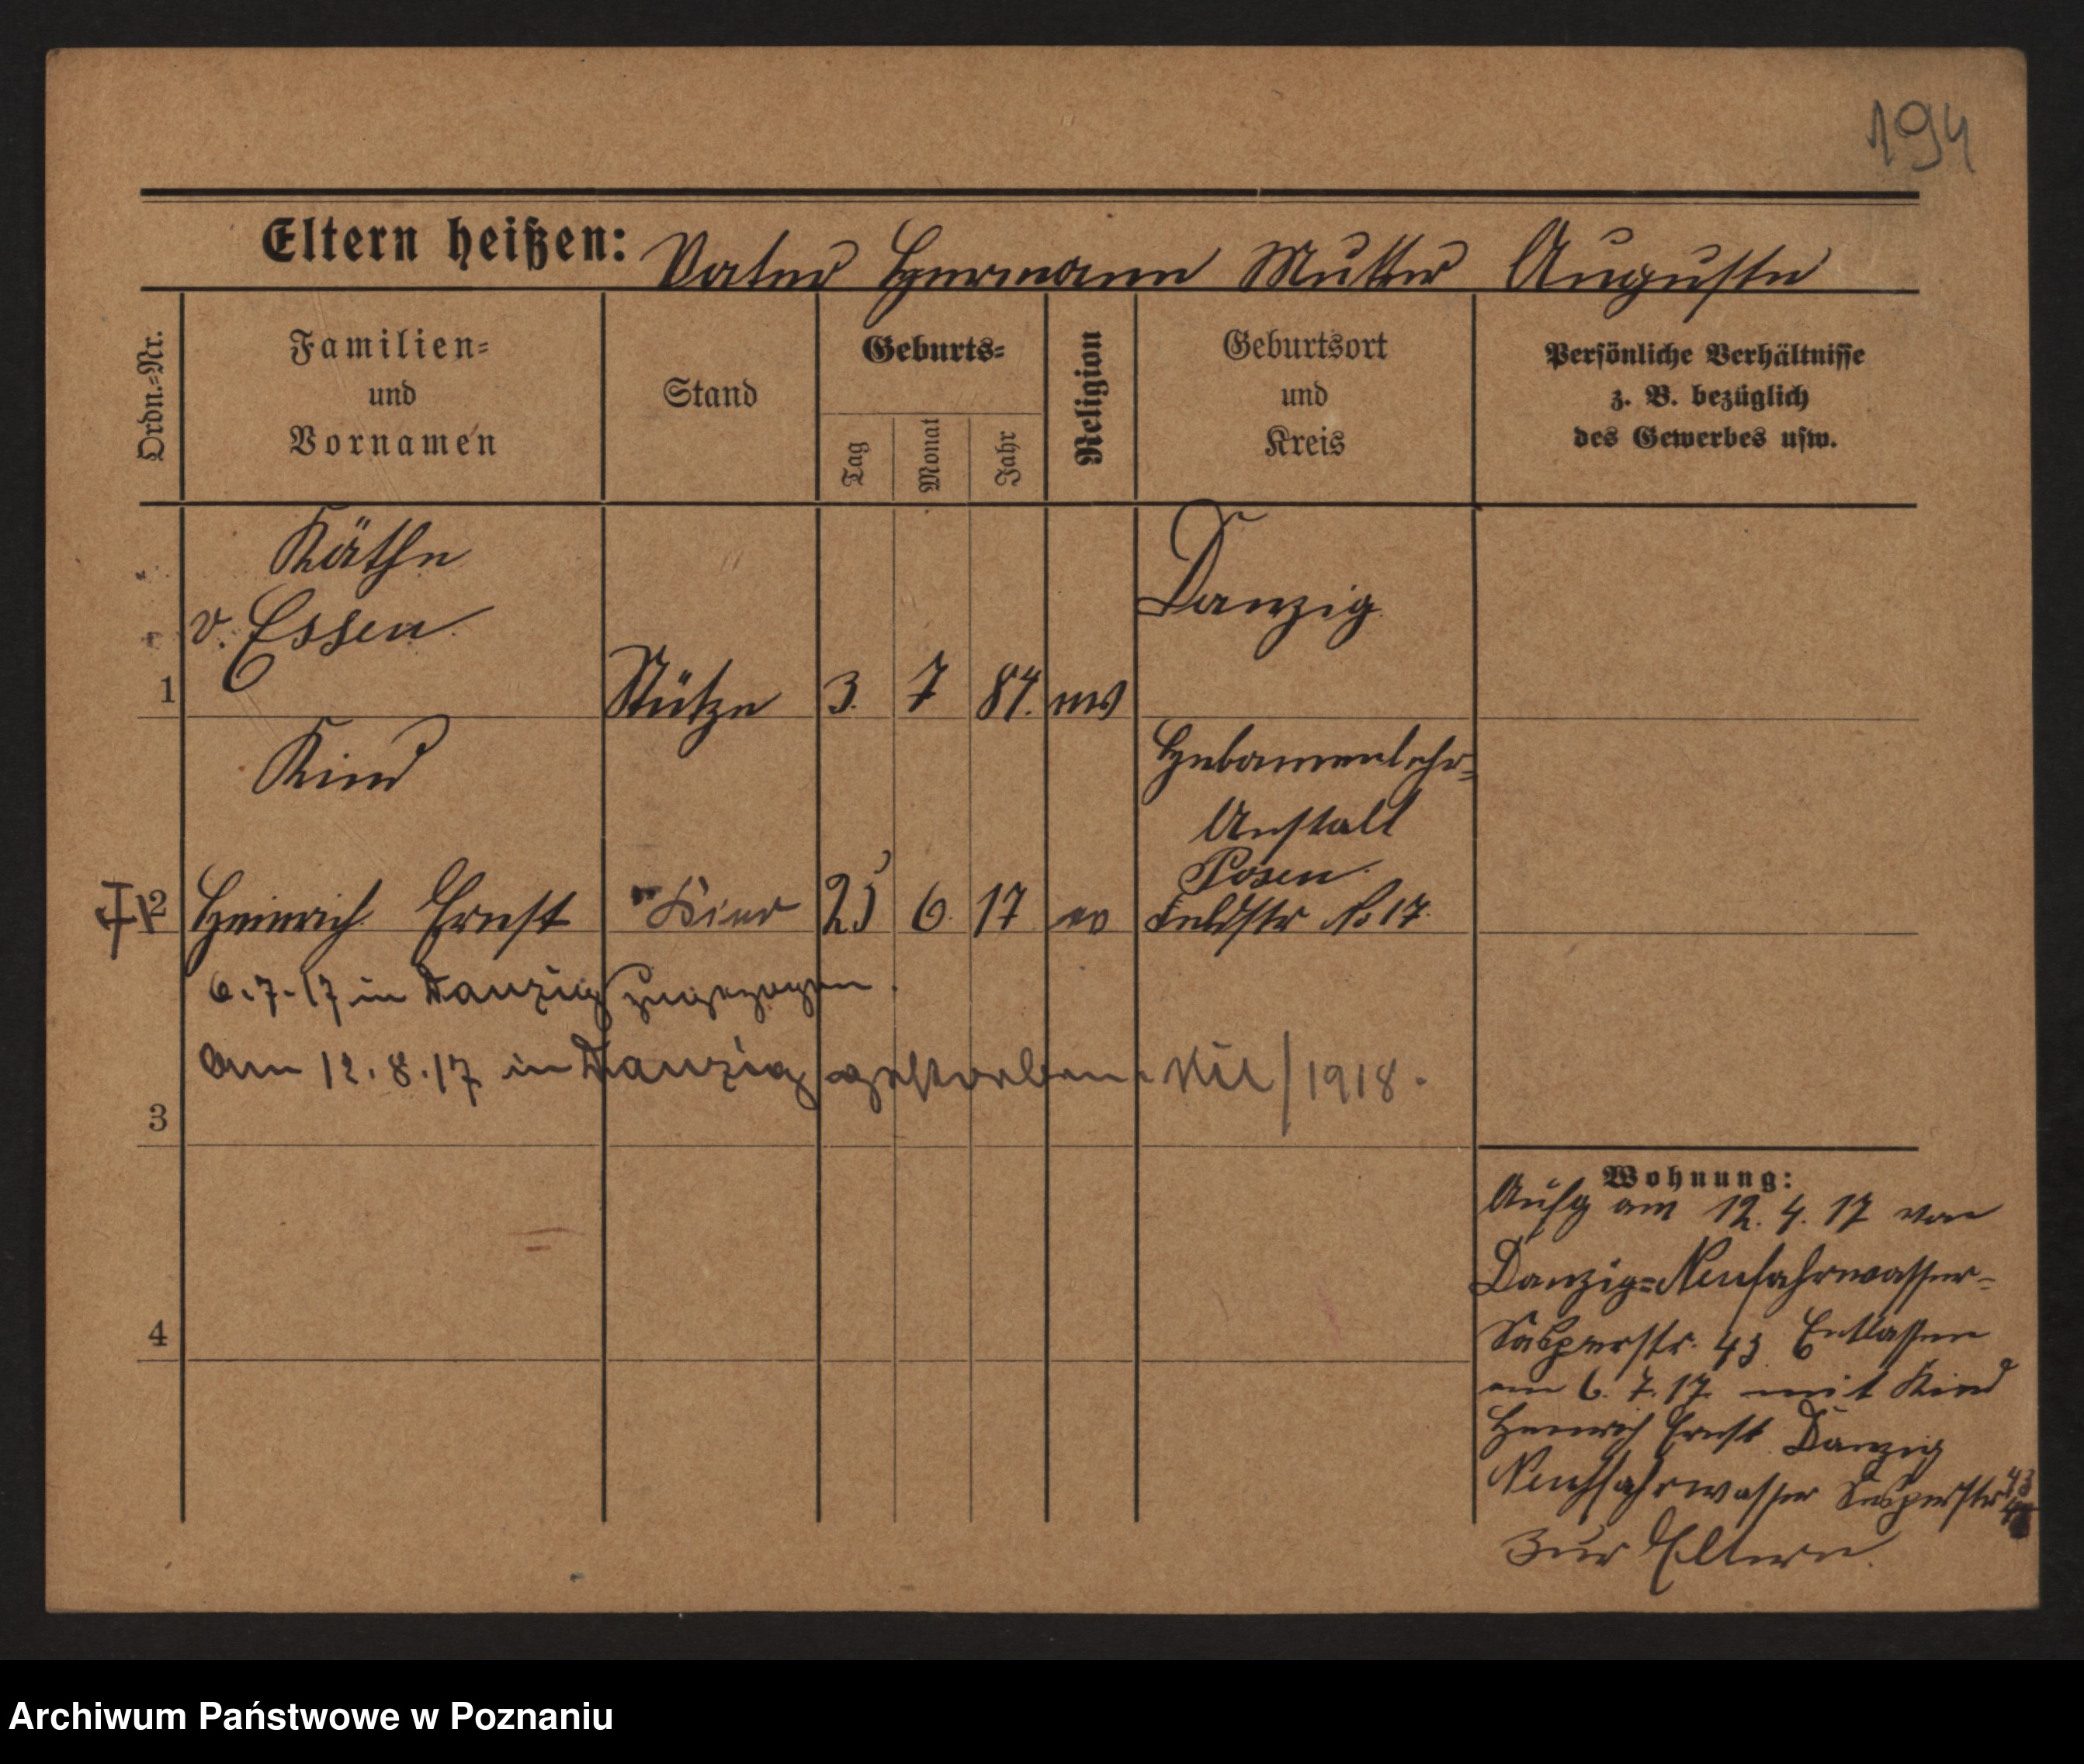 194
Eltern heißen: Vater Hermann Mutter Auguste
Ordn.=Nr.
Familien=
und
Vornamen
Stand
Geburts=
Tag
Monat
Jahr
Religion
Geburtsort
und
Kreis
Persönliche Verhältnisse
z. B. bezüglich
des Gewerbes usw.
Käthe
v. Essen
1 Stütze 3. 7 84. ev
Danzig
Kind
2 Heinrich Ernst Kind 25 6. 17 ev
Hebammenlehr=
Anstalt
Posen
Feldstr No 17.
6.7.17 in Danzig zugezogen.
Am 12.8.17 in Danzig gestorben. /1918.
3
4
Wohnung:
Aufg am 12. 4. 17 von
Danzig=Neufahrwasser-
Sasperstr. 43 Entlassen
am 6. 7. 17. mit Kind
Heinrich Ernst Danzig
Neuhfahrwasser Sasperstr 43
zur Eltern.
Archiwum Państwowe w Poznaniu